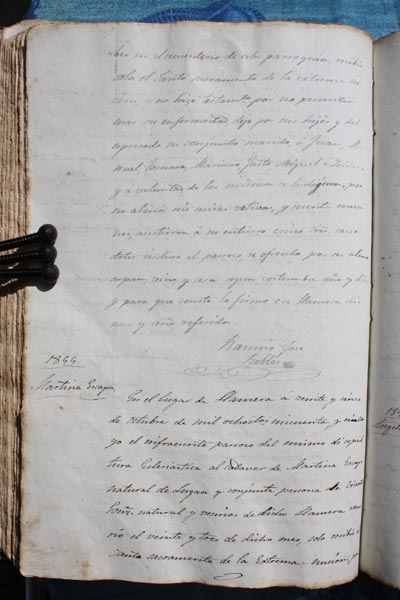 ber en el cementerio de esta parroquia, recibió
solo el Santo sacramento de la extrema un
ción, y no hizo testamto por no permitir
mas su enfermedad dejo por sus hijos y del
espresado su conjunto marido, á Juan, Ma
nuel, Tomasa, Mariano Justo Miguel é Isidoro
y a voluntad de los mismos se le digeron por
su alma misas votivas, y
asistieron á su entierro cinco tres sacer
dotes incluso el parroco se ofrenda por su alma
pan, vino y cera segun costumbre año y dia
y para que conste lo firmo en Llamera dia
mes y año referidos.
Ramiro
Robles
1855.
Martina Escapa
En el lugar de Llamera á veinte y cinco
de octubre de mil ochocto cincuenta y cinco
yo el infraescrito parroco del mismo di sepul
tura Eclesiastica al cadaver de Martina Escapa
natural de Lugan y conjunta persona de
Gonz. natural y vecinos de dicho Llamera mu
rió el veinte y tres de dicho mes, solo recibió el
Santo sacramento de la Extrema-uncion, y